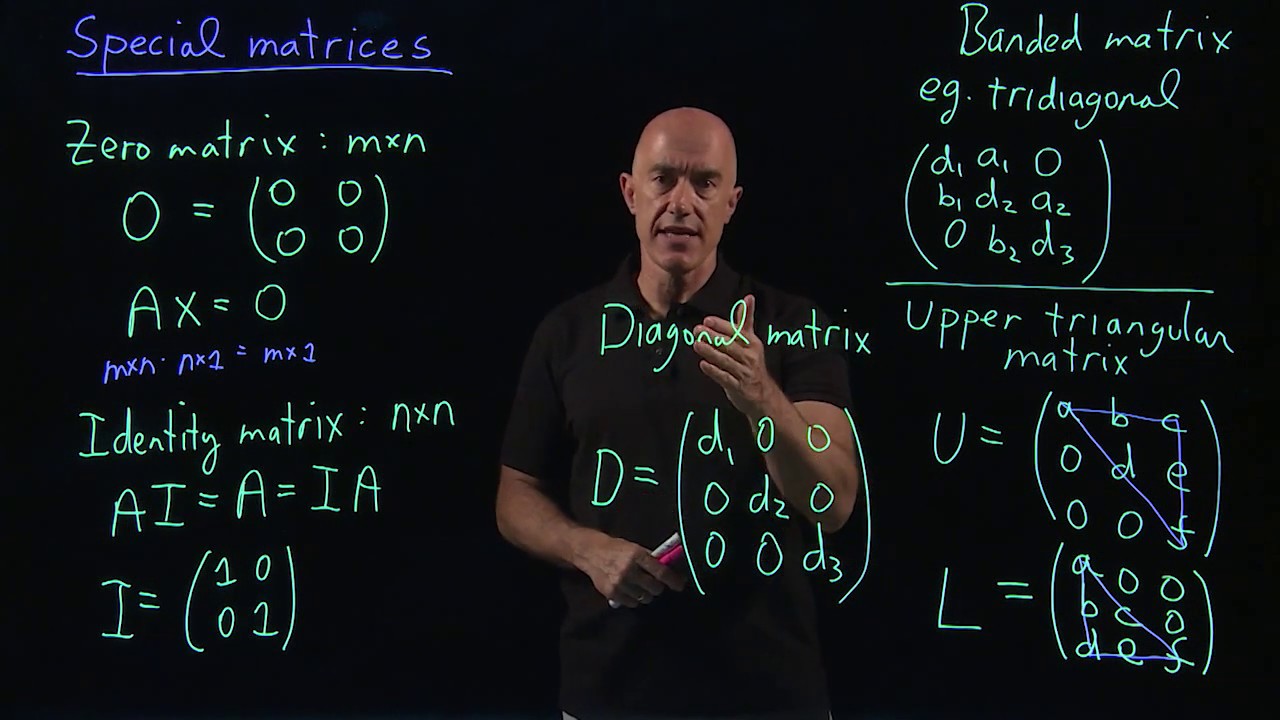 Special matrices
Zero matrix : m×n
O = (0 0
0 0)
AX = 0
m×n · n×1 = m×1
Identity matrix : n×n
AI = A = IA
I = (1 0
0 1)
Diagonal matrix
D = (d₁ 0 0
0 d₂ 0
0 0 d₃)
Banded matrix
eg. tridiagonal
(d₁ a₁ 0
b₁ d₂ a₂
0 b₂ d₃)
Upper triangular
matrix
U = (a b c
0 d e
0 0 f)
L = (a 0 0
b c 0
d e f)